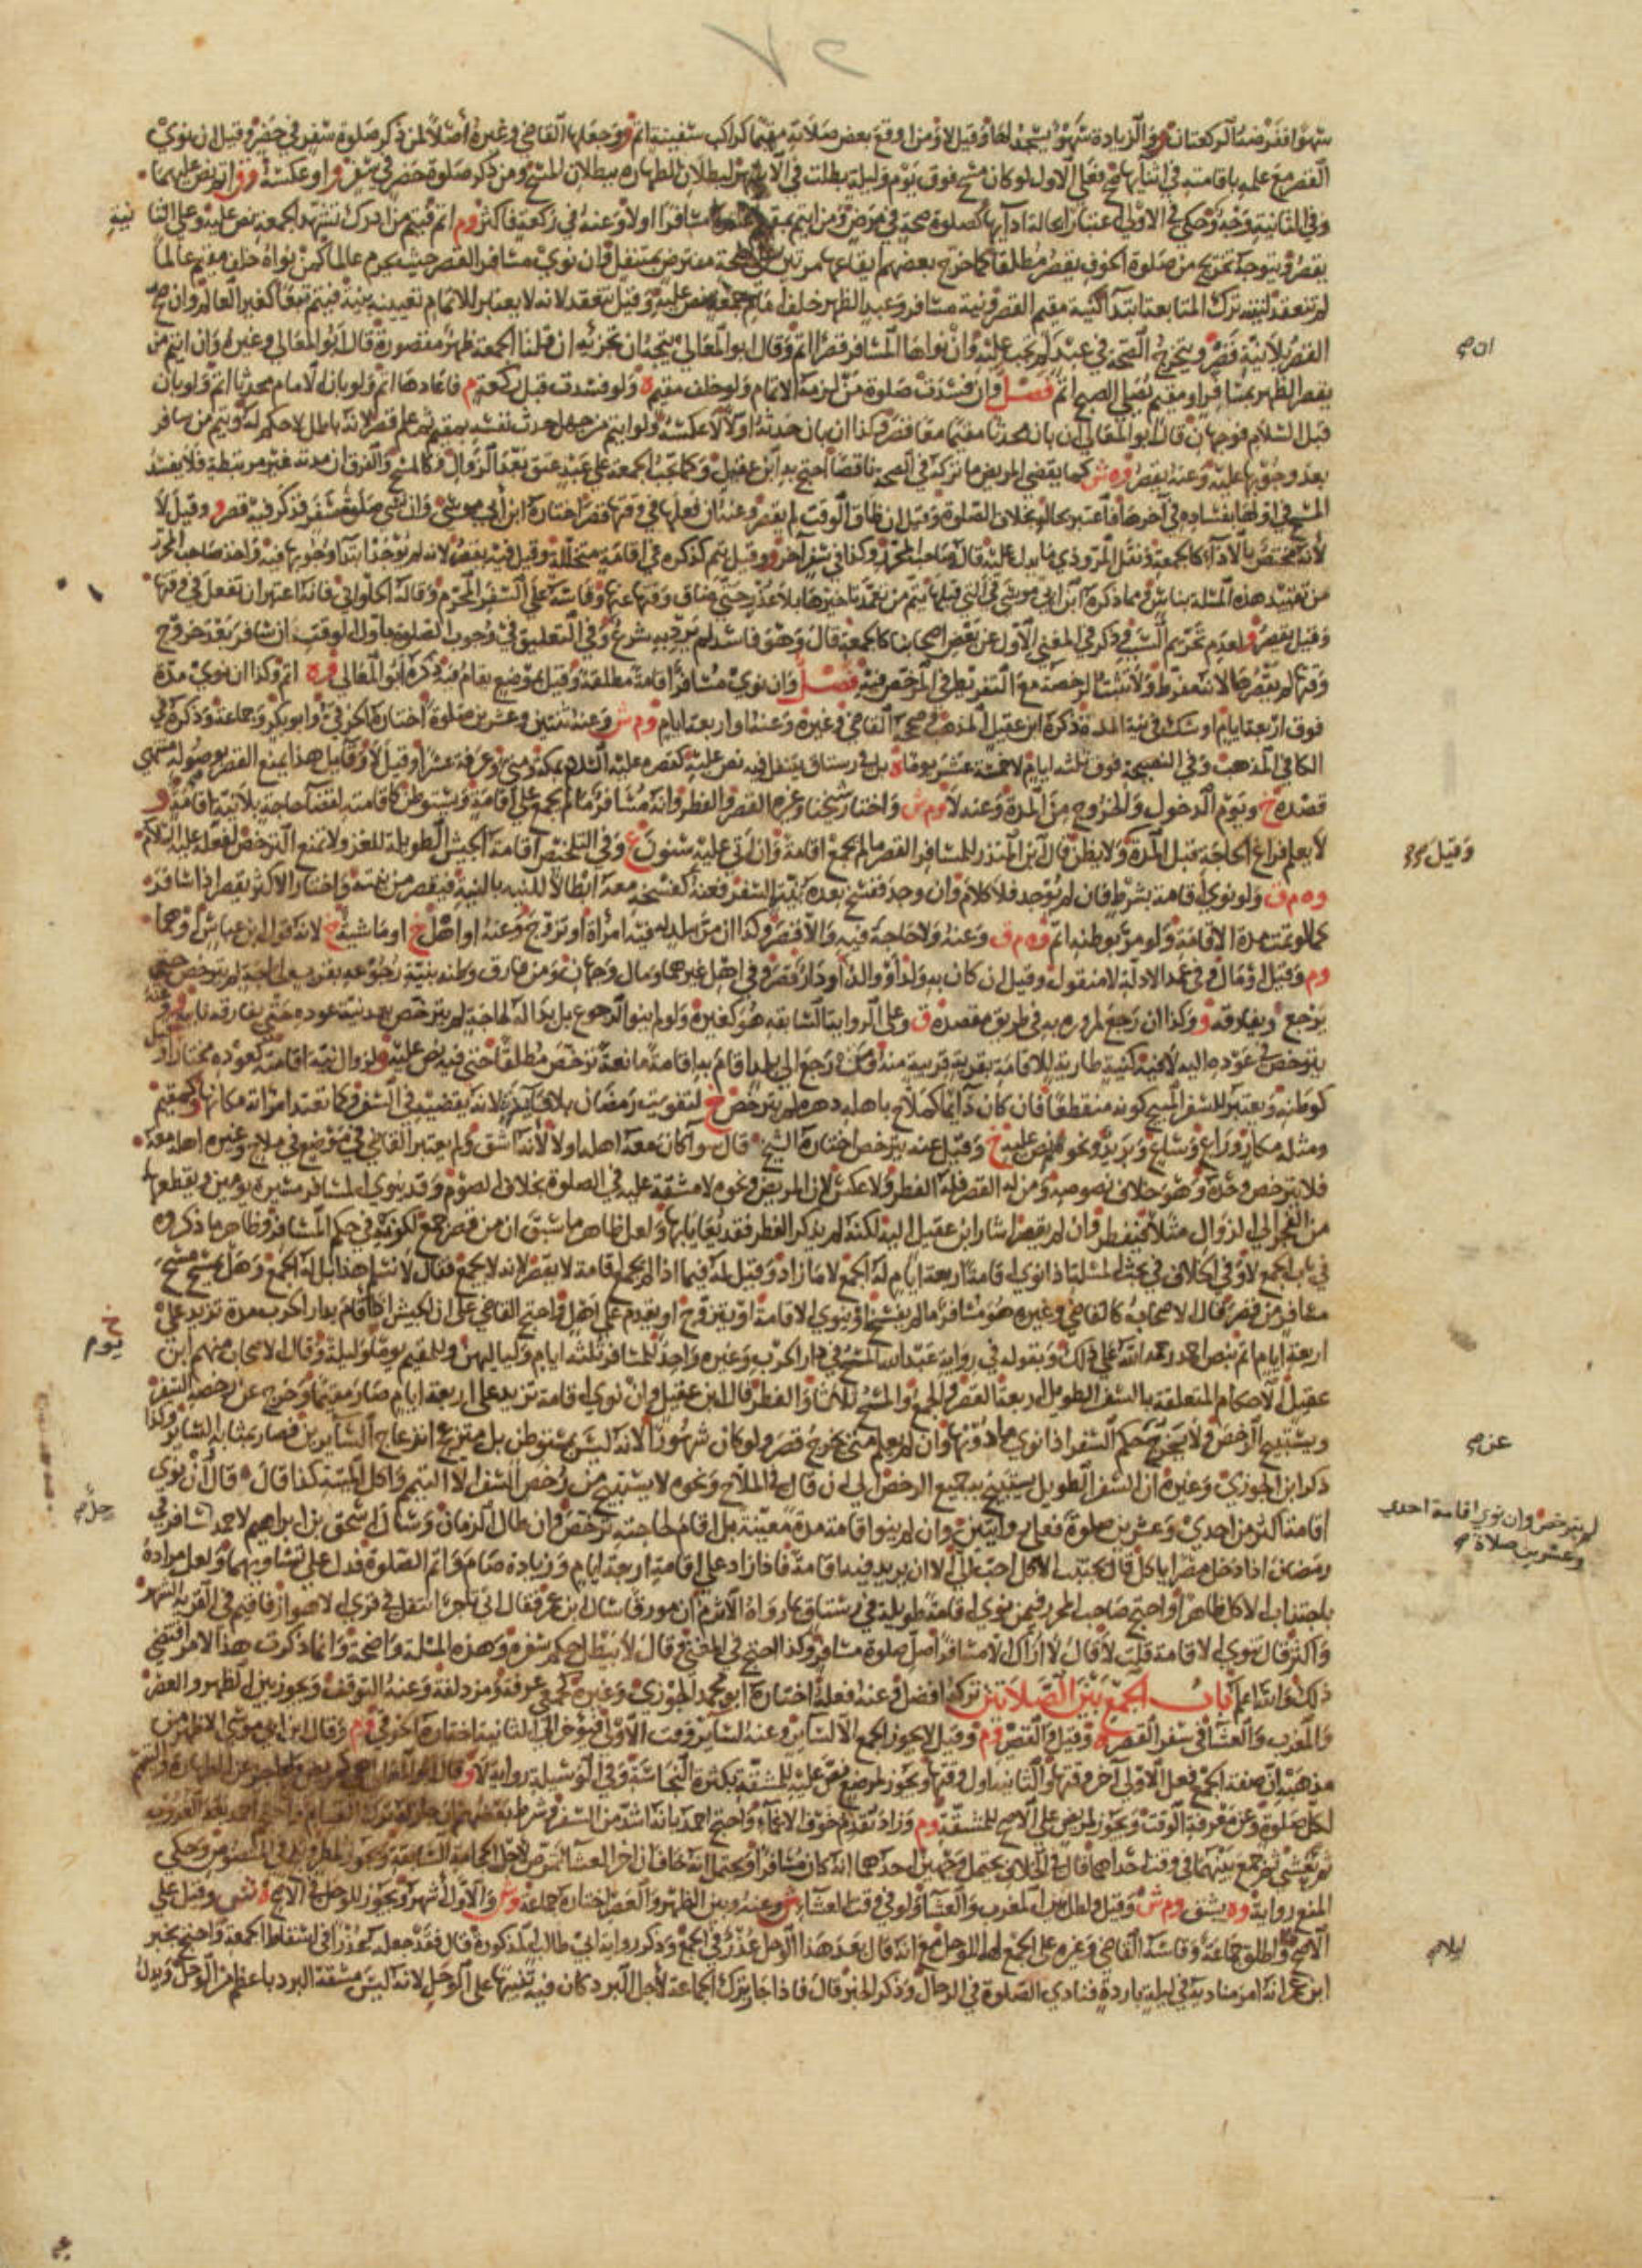 سهوا ففرضه الركعتان والزيادة سهو يسجد لها وقيل لا ومن اوقع بعض صلاته مقيما كراكب سفينة اتم وجعلها القاضي وغيره أصلا لمن ذكر صلوة سفر في حضر وقيل ان نوى
القصر مع علمه باقامته في اثنايها صح فعلى الاول لو كان مسح فوق يوم وليلة بطلت في الاشهر لبطلان الطهارة ببطلان المسح ومن ذكر صلوة حضر في سفر او عكسه اتم نص عليهما
وفي الثانية وجه وحكي في الاولى اعتبارا بحالة ادايها كصلوة صحة في مرض ومن ايتم بمقيم اتم مسافرا اولا وعنه في ركعة فاكثر وم اتم فيتم من ادرك تشهد الجمعة نص عليه وعلى الثا نية
يقصر ويتوجه تخريج من صلوة الخوف يقصر مطلقا كما خرج بعضهم ايقاعها مرتين على صحة مفترض بمتنفل وان نوى مسافر القصر حيث يحرم عالما كمن نواه خلف مقيم عالما
لم تنعقد لنيته ترك المتابعة ابتداء كنية مقيم القصر ونية مسافر وعبد الظهر خلف امام جمعة نص عليه وقيل تنعقد لانه لا يعتبر للاتمام تعيينه بنية فيتم تبعا كغير العالم وان صح
القصر بلا نية قصر ويتخرج الصحة في عبد لم يجب عليه وان نواها المسافر قصرا اتم وقال ابو المعالي يتجه ان تجزئه ان قلنا الجمعة ظهر مقصورة قال ابو المعالي وغيره وان ايتم من
ان صح
يقصر الظهر بمسافر او مقيم يصلي الصبح اتم فصل وان فسدت صلوة من لزمه الاتمام ولو خلف مقيم ه ولو فسدت قبل ركعة م فاعادها اتم ولو بان الامام محدثا اتم ولو بان
قبل السلام فوجهان قال ابو المعالي ان بان محدثا مقيما معا قصر وكذا ان بان حدثه اولا لا عكسه ولو ايتم من جهل حدث نفسه بمقيم ثم علم قصر لانه باطل لا حكم له ويتم من سافر
بعد وجوبها عليه وعنه يقصر وه ش كما يقضي المريض ما تركه في الصحة ناقصا احتج به ابن عقيل وكما تجب الجمعة على عبد عتق بعد الزوال وكالمسح والفرق ان مدته غير مرتبطة فلا يفسد
المسح في اولها بفساده في آخرها فاعتبر بحاله بخلاف الصلوة وقيل ان ضاق الوقت لم يقصر وعنه ان فعلها في وقتها قصر اختاره ابن أبي موسى وان نسي صلوة سفر فذكر فيه قصر وقيل لا
لأنه مختص بالاداء كالجمعة ونقل المروذي ما يدل عليه قاله صاحب المحرر وكذا في سفر آخر وقيل يتم كذكره في اقامة متخللة وقيل فيه يقصر لانه لم يوجد ابتدا وجوبها فيه واخذ صاحب المحرر
من تقييد هذه المسئلة بناس ومما ذكره ابن ابي موسى في التي قبلها يتم من تعمد تاخيرها بلا عذر حتى ضاق وقتها عنها وقاسه على السفر المحرم وقاله الحلواني فانه اعتبر ان تفعل في وقتها
وقيل يقصر لعدم تحريم السبب وذكر في المغني الاول عن بعض اصحابنا كالجمعة قال وهو فاسد لم يرد به شرع وفي التعليق في وجوب الصلوة باول الوقت ان سافر بعد خروج
وقتها لم يقصرها لانه مفرط ولا تثبت الرخصة مع التفريط في المرخص فيه فصل وان نوى مسافر اقامة مطلقة وقيل بموضع يقام فيه ذكره ابو المعالي وه اتم وكذا ان نوى مدة
فوق اربعة ايام او شك في نية المدة ذكره ابن عقيل المذهب صححه القاضي وغيره وعنه او اربعة ايام وم ش وعنه ثنتين وعشرين صلوة اختاره الخرقي وابو بكر وجماعة وذكره في
الكافي المذهب وفي النصيحة فوق ثلثه ايام لا خمسة عشر يوما ه بل في رستاق يتنقل فيه نص عليه كقصره عليه السلام بمكة ومنى وعرفة عشرا وقيل لا وقايل هذا يمنع القصر بوصوله منتهى
قصده خ ويوم الدخول والخروج من المدة وعنه لا وم ش واختار شيخنا وغيره القصر والفطر وانه مسافر ما لم يجمع على اقامة ويستوطن كاقامته لقضا حاجة بلا نية اقامة و
لا يعلم فراغ الحاجة قبل المدة ولا يظن قال ابن المنذر للمسافر القصر ما لم يجمع اقامة وان اتى عليه سنون ع وفي التلخيص اقامة الجيش الطويلة للغزو لا تمنع الترخص لفعله عليه السلام
وقيل صح
وه م ق ولو نوى اقامة بشرط فان لم توجد فلا كلام وان وجد ففسخ بعده بنية السفر فعنه كفسخه معه ابطالا للنيه بالنية فيقصر من نيته واختار الاكثر يقصر اذا سافر
كما لو تمت مدة الاقامة ولو مر بوطنه اتم وه م ق وعنه ولا حاجة فيه والا قصر وكذا ان مر ببلد له فيه امراة او تزوج وعنه او اهل خ او ماشية خ لانه قول ابن عباس أوهما
وم وقيل او مال وفي عمد الادلة لا منقول وقيل ان كان به ولد او والد أو دار قصر وفي اهل غيرهما ومال وجهان ومن فارق وطنه بنية رجوعه بقرب لحاجة لم يترخص حتى
يرجع ويفارقه و وكذا ان رجع لمروره به في طريق مقصده ق وعلى الرواية السابقه هو كغيره ولو لم ينو الرجوع بل بدا له لحاجة لم يترخص بعد نية عوده حتى يفارقه نابية و
يترخص في عوده اليه لا فيه كنية طارية للاقامة بقرية قريبة منه ومن رجع الى بلد اقام به اقامة مانعة ترخص مطلقا حتى فيه نص عليه لزوال نية اقامته كعوده مختارا
كوطنه ويعتبر للسفر المبيح كونه منقطعا فان كان دايما كملاح باهله دهره لم يترخص خ لتفويت رمضان بلا فايدة لانه يقضيه في السفر وكما تعتد امراته مكانها كمقيم
ومثله مكار وراع وساع وبريد ونحوهم نص عليه خ وقيل عنه يترخص اختاره الشيخ قال سوا كان معه اهله اولا لأنه اشق ولم يعتبر القاضي في موضع في ملاح وغيره اهله معه
فلا يترخص وحده وهو خلاف نصوصه ومن له القصر فله الفطر ولا عكس لان المريض ونحوه لا مشقة عليه في الصلوة بخلاف الصوم وقد ينوي المسافر مسيرة يومين ويقطعها
من الفجر الى الزوال مثلا فيفطر وان لم يقصر اشار ابن عقيل اليه لكنه لم يذكر الفطر فقد يعايا بها ولعل ظاهر ما سبق ان من قصر جمع لكونه في حكم المسافر وظاهر ما ذكروه
في باب الجمع لا وفي الخلاف في بحث المسئلة اذا نوى اقامة اربعة ايام له الجمع لا ما زاد وقيل له فيما اذا لم يجمع اقامة لا يقصر لانه لا يجمع فقال لا نسلم هذا بل له الجمع وهل يمسح مسح
مسافر من قصر قال الاصحاب كالقاضي وغيره هو مسافر ما لم يفسخ او ينوي الاقامة او يتزوج او يقدم على اهل واحتج القاضي على ان الجيش اذا اقام بدار الحرب مدة تزيد على
اربعة ايام اتم بنص احمد رحمه الله على ذلك وبقوله في رواية عبد الله المسح في دار الحرب وغيره واحد للمسافر ثلثة ايام ولياليهن وللمقيم يوم وليلة وقال الاصحاب منهم ابن
خ يوم
عقيل الاحكام المتعلقة بالسفر الطويل اربعة القصر والجمع والمسح ثلاثا والفطر قال ابن عقيل وان نوى اقامة تزيد على اربعة ايام صار مقيما وخرج عن رخصة السفر
ويستبيح الرخص ولا يخرج حكم السفر اذا نوى ما دونها وان لم يعلم متى يخرج قصر ولو كان شهورا لانه ليس بمستوطن بل منزعج انزعاج السايرين فصار بمثابة الساير وكذا
عن صح
ذكر ابن الجوزي وغيره ان السفر الطويل يستبيح به جميع الرخص الى ان قال في الملاح ونحوه لا يستبيح من رخص السفر الا التيمم واكل الميتة كذا قال قال أن نوى
اقامة اكثر من احدى وعشرين صلوة فعلى روايتين وان لم ينو اقامة مدة معينة بل اقام لحاجته ترخص وان طال الزمان وسأل اسحق بن ابراهيم لاحمد اسافر في
لم يترخص وان نوى اقامة احدى وعشرين صلاة صح
رمضان اذا دخل مصرا ياكل قال يجتنب الاكل احب الي الا ان يريد فيه اقامة فاذا زاد على اقامة اربعة ايام وزيادة صام واتم الصلوة فدل على تساويهما ولعل مراده
باجتناب الاكل ظاهرا واحتج صاحب المحرر فيمن نوى اقامة طويلة في رستاق بما رواه الاثرم ان مورقا سال ابن عمر فقال اني تاجر اتنقل في قرى الاهواز فاقيم في القرية الشهر
واكثر قال تنوي الاقامة قلت لا قال لا أراك الا مسافرا صل صلوة مسافر وكذا احتج في المغني وقال لا يبطل حكم سفره وهذه المسلة واضحة وانما ذكرت هذا لامر اقتضى
ذلك والله اعلم باب الجمع بين الصلاتين تركه افضل وعنه فعله اختاره ابو محمد الجوزي وغيره كجمعي عرفة ومزدلفة وعنه التوقف ويجوز بين الظهر والعصر
والمغرب والعشا في سفر القصر ه وقيل والقصير وم وقيل لا يجوز الجمع الا لساير وعنه لساير وقت الاولى فيؤخر الى الثانية اختاره الخرقي وم وقال ابن ابي موسى الاظهر من
مذهبه ان صفة الجمع فعل الاولى آخر وقتها والثانية اول وقتها ويجوز لمرضع نص عليه للمشقة بكثرة النجاسة وفي الوسيلة رواية لا
لكل صلوة وعن معرفة الوقت ويجوز لمريض على الاصح للمشقة وم وزاد تقديم خوف الاغماء واحتج احمد بانه اشد من السفر وشرط بعضهم
ثم تعشى ثم جمع بينهما في وقت احداهما قال في الخلاف يحتمل وجهين احدهما انه كان مسافرا ويحتمل انه خاف ان اخر العشا يمرض لاجل الحجامة السابقة ويجوز لمطر في المنصوص وحكي
المنع رواية وه يشق وم ش وقيل ولطل بين المغرب والعشا ولو في وقت العشاء ش وعنه وبين الظهر والعصر اختاره جماعة وش والاول أشهر ويجوز للوحل في الاصح وقيل على
الاصح واطلق جماعة وقاسه القاضي وغيره على الجمع لها للوحل مع انه قال بعد هذا الوحل عذر في الجمع وذكر رواية ابي طالب المذكورة قال فقد جعله عذرا في اسقاط الجمعة واحتج بخبر
ليلا صح
ابن عمر انه امر مناديه في ليلة باردة فنادى الصلوة في الرحال وذكر الخبر قال فاذا جاز ترك الجماعة لأجل البرد كان فيه تنبيها على الوحل لانه ليس مشقة البرد باعظم من الوحل ويدل